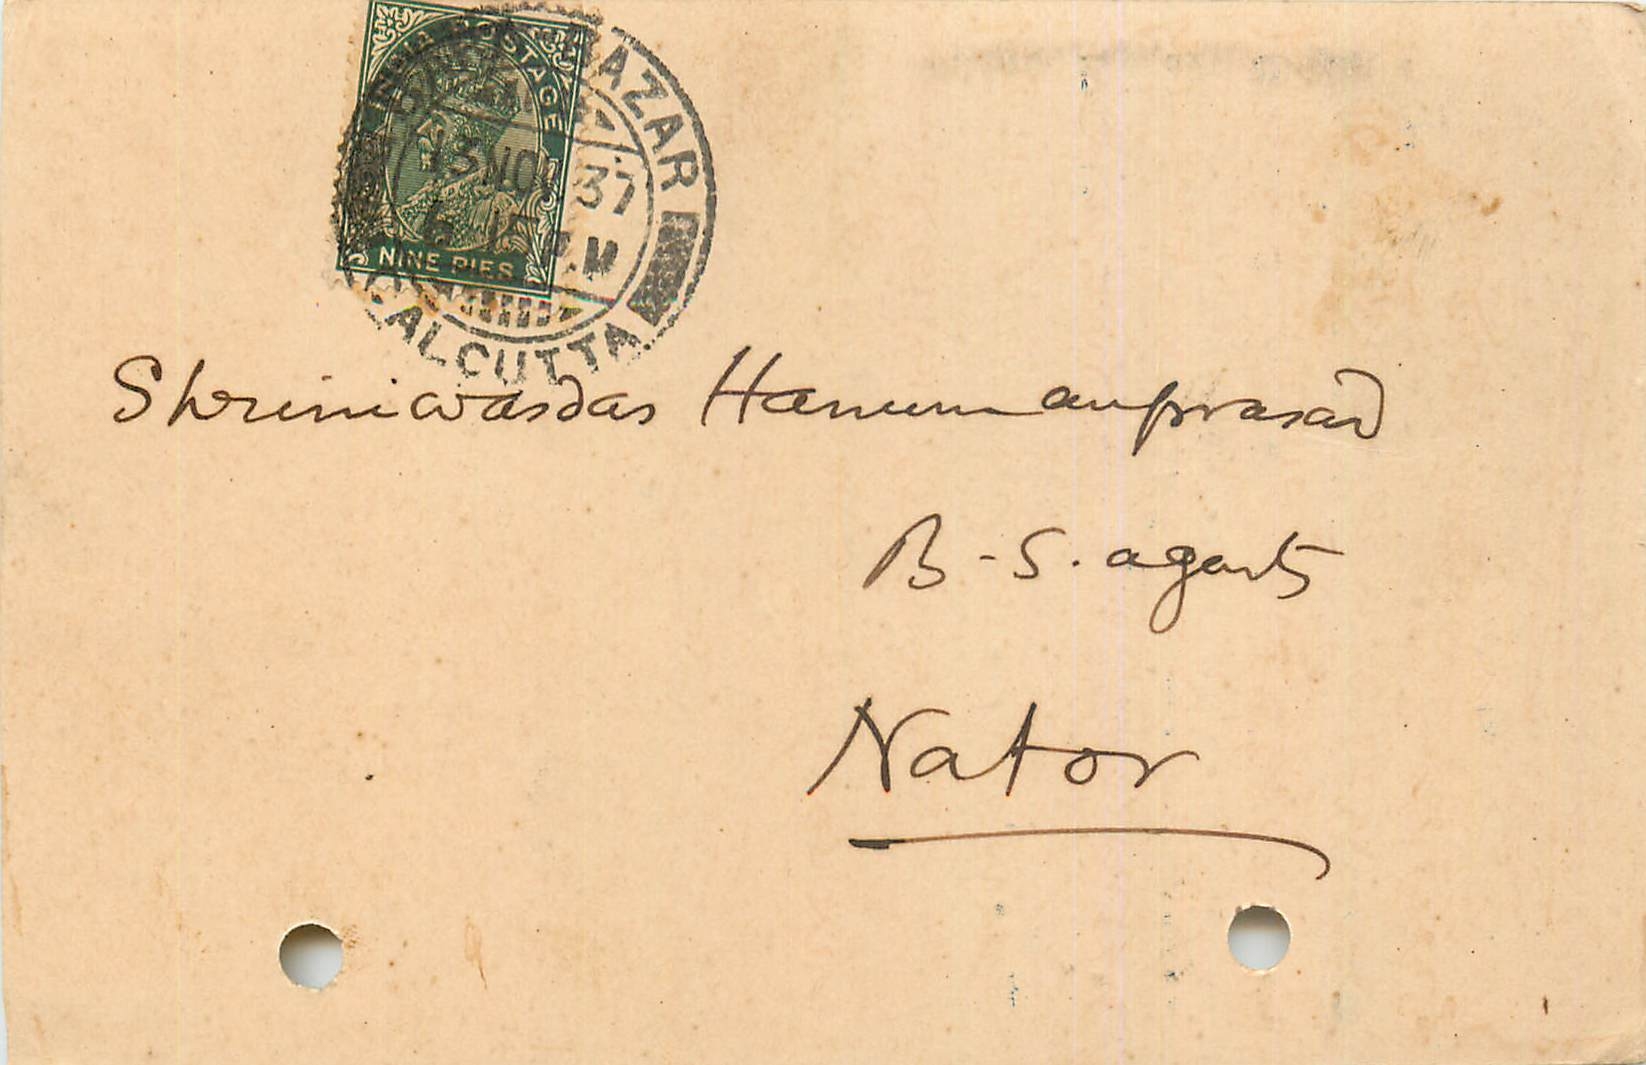 INDIA POSTAGE
NINE PIES
BAZAR
13 NOV 37
P.M
CALCUTTA
Shriniwasdas Hanumanprasad
B-S. agents
Nator